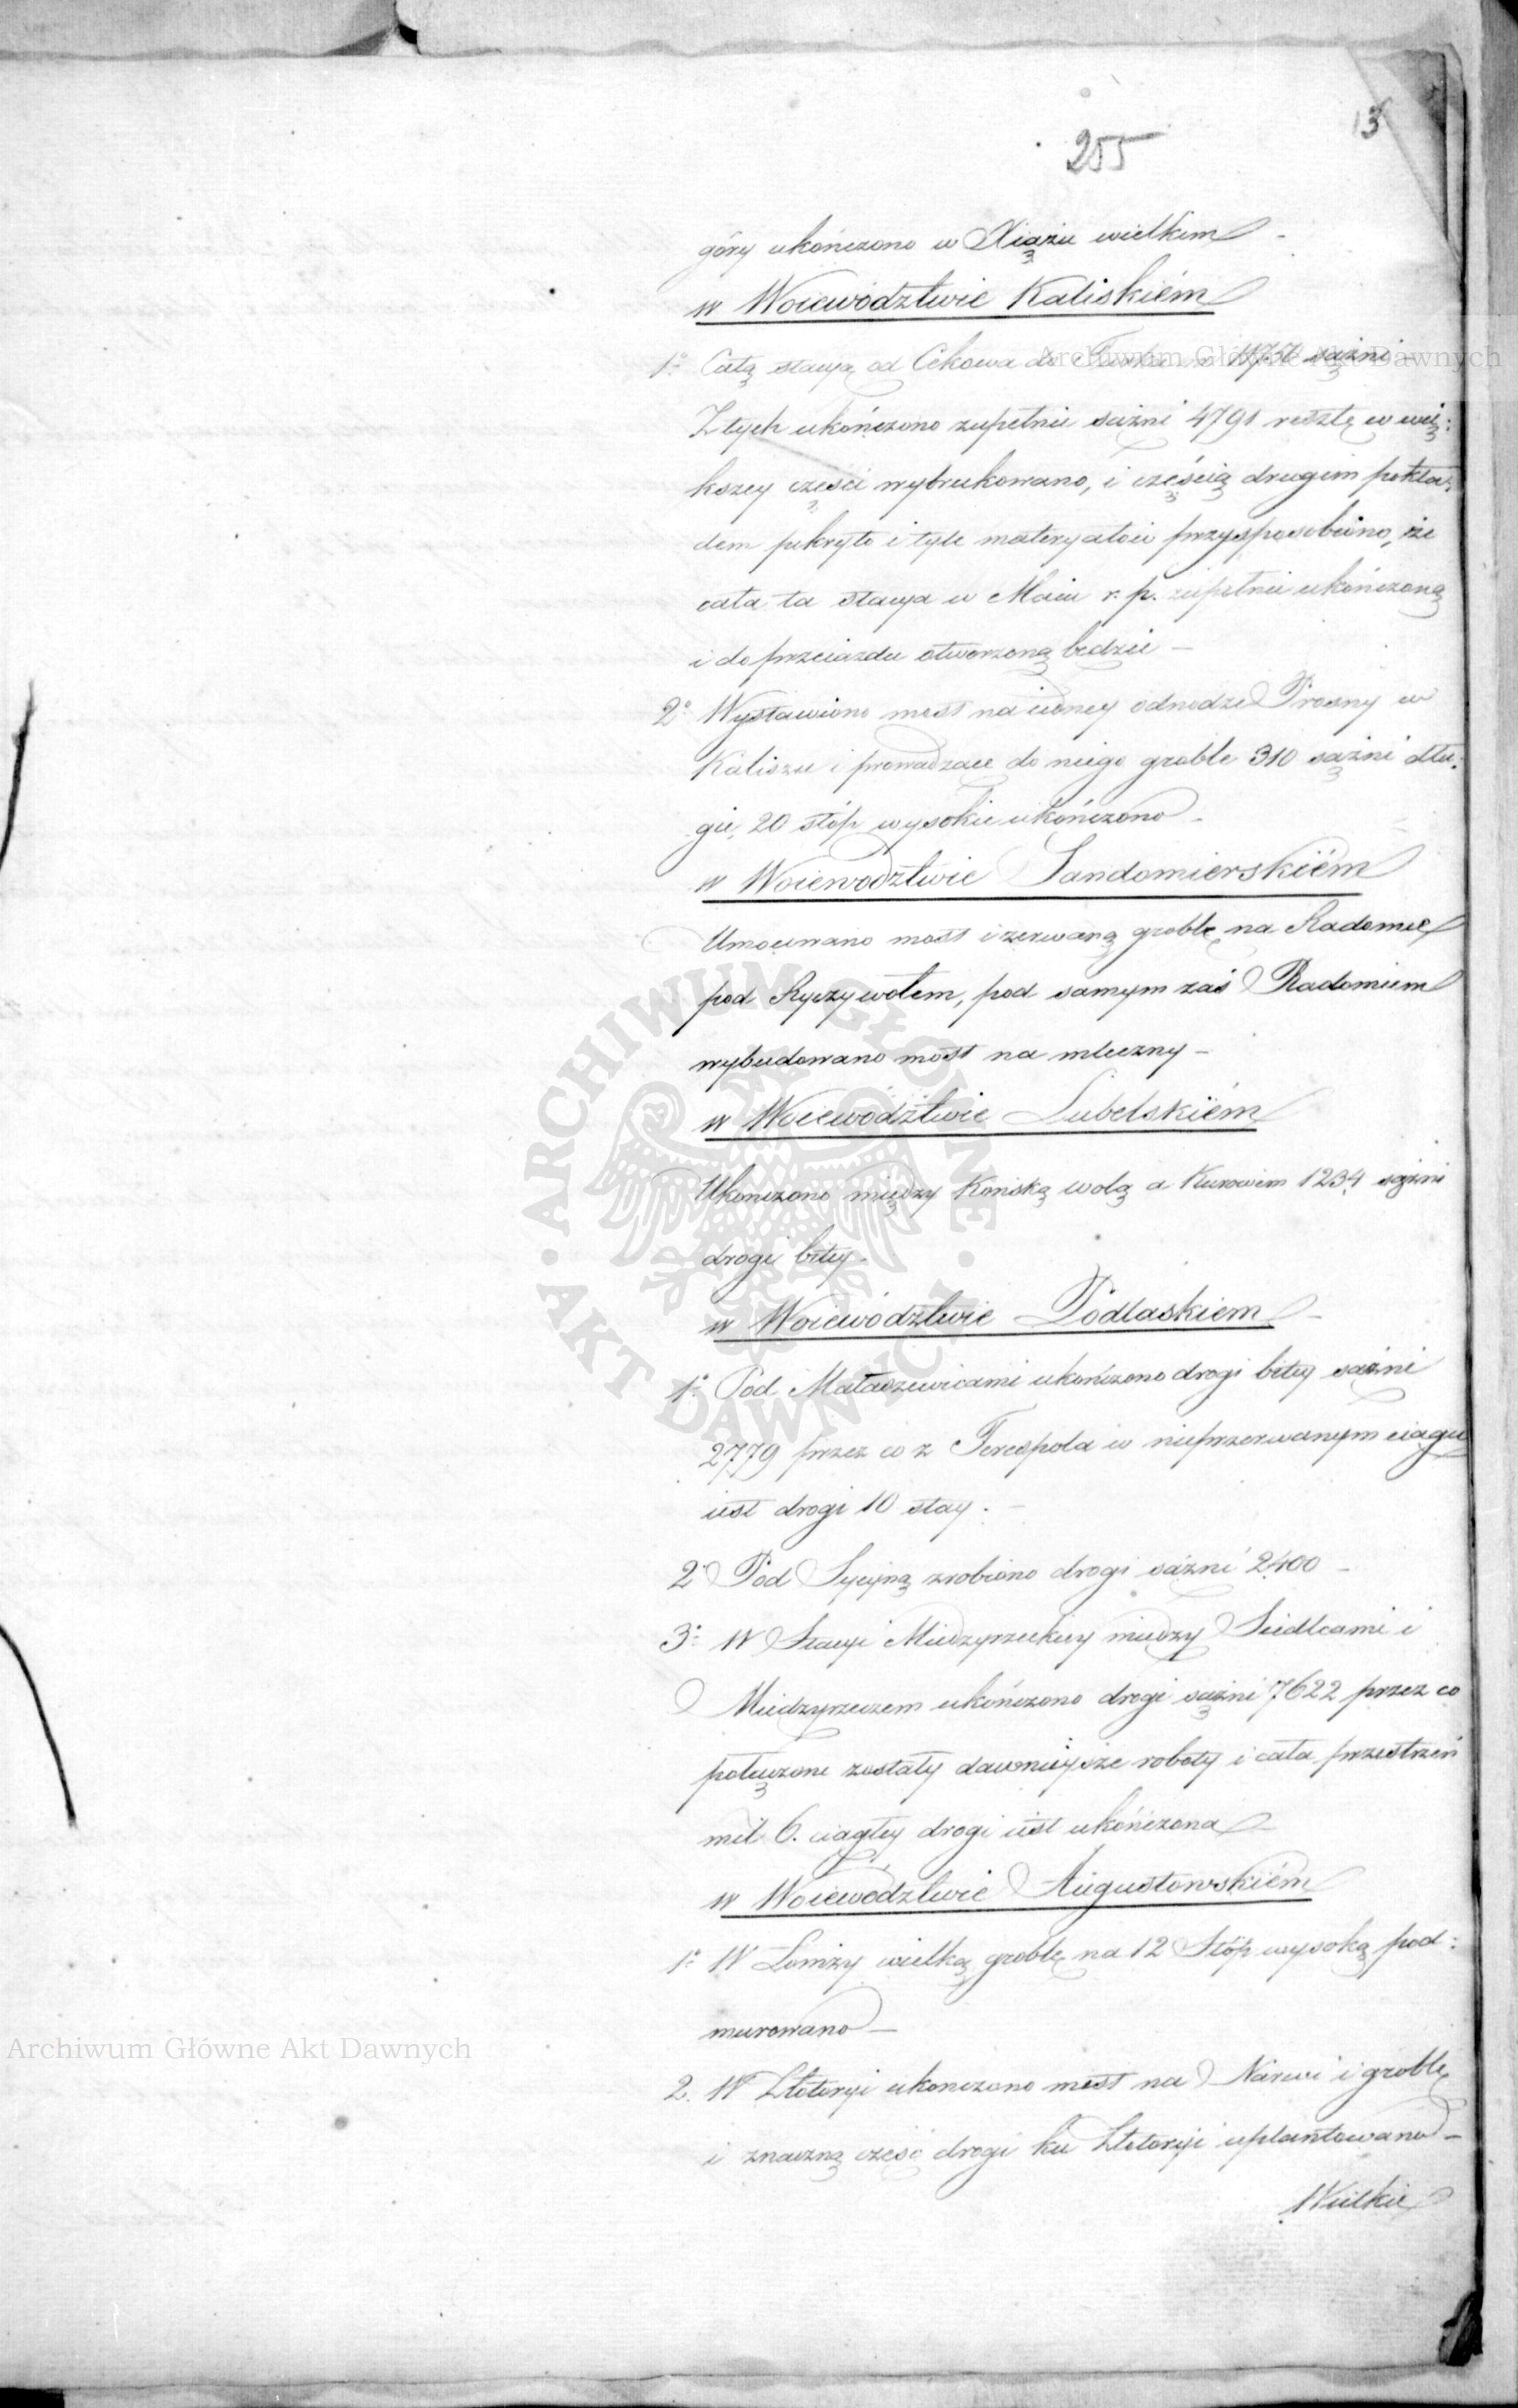 13
255
góry ukończono w Xiążu wielkim
w Woiewództwie Kaliskiém
1° Całą stacyą od Cekowa do sążni
Z tych ukończono zupełnie sążni 4791 resztę w wię:
kszey części wybrukowano, i częścią drugim pokła:
dem pokryto i tyle materyałów przysposobiono, że
cała ta stacya w Maiu r. p. zupełnie ukończoną
i do przeiazdu otworzoną będzie —
2° Wystawiono most na iedney odnodze Prosny w
Kaliszu i prowadzące do niego groble 310 sążni dłu:
gie, 20 stóp wysokie ukończono –
w Woiewodztwie Sandomierskiém
Umocowano most i zerwaną groblę na Radomce
pod Ryczywołem, pod samym zaś Radomiem
wybudowano most na mleczny –
w Woiewództwie Lubelskiém
Ukonczono między Końską wolą a Kurowem 1234 sążni
drogi bitey –
w Woiewództwie Podlaskiem –
1° Pod Małaszewicami ukończono drogi bitey sążni
2779 przez co z Terespola w nieprzerwanym ciągu
iest drogi 10 stay. –
2° Pod Sycyną zrobiono drogi sążni 2400 –
3° W Stacyi Miedzyrzeckiey między Siedlcami i
Miedzyrzeczem ukończono drogi sążni 7622 przez co
połączone zostały dawnieysze roboty i cała przestrzeń
mil 6. ciągłey drogi iest ukończona
w Woiewodztwie Augustowskiém
1° W Łomży wielką groblę na 12 Stóp wysoką pod:
murowano —
2. W Złotoryi ukonczono most na Narwi i groblę
i znaczną część drogi ku Złotoryi uplantowano –
Wielkie
Archiwum Główne Akt Dawnych
Archiwum Główne Akt Dawnych
ARCHIWUM GŁÓWNE AKT DAWNYCH